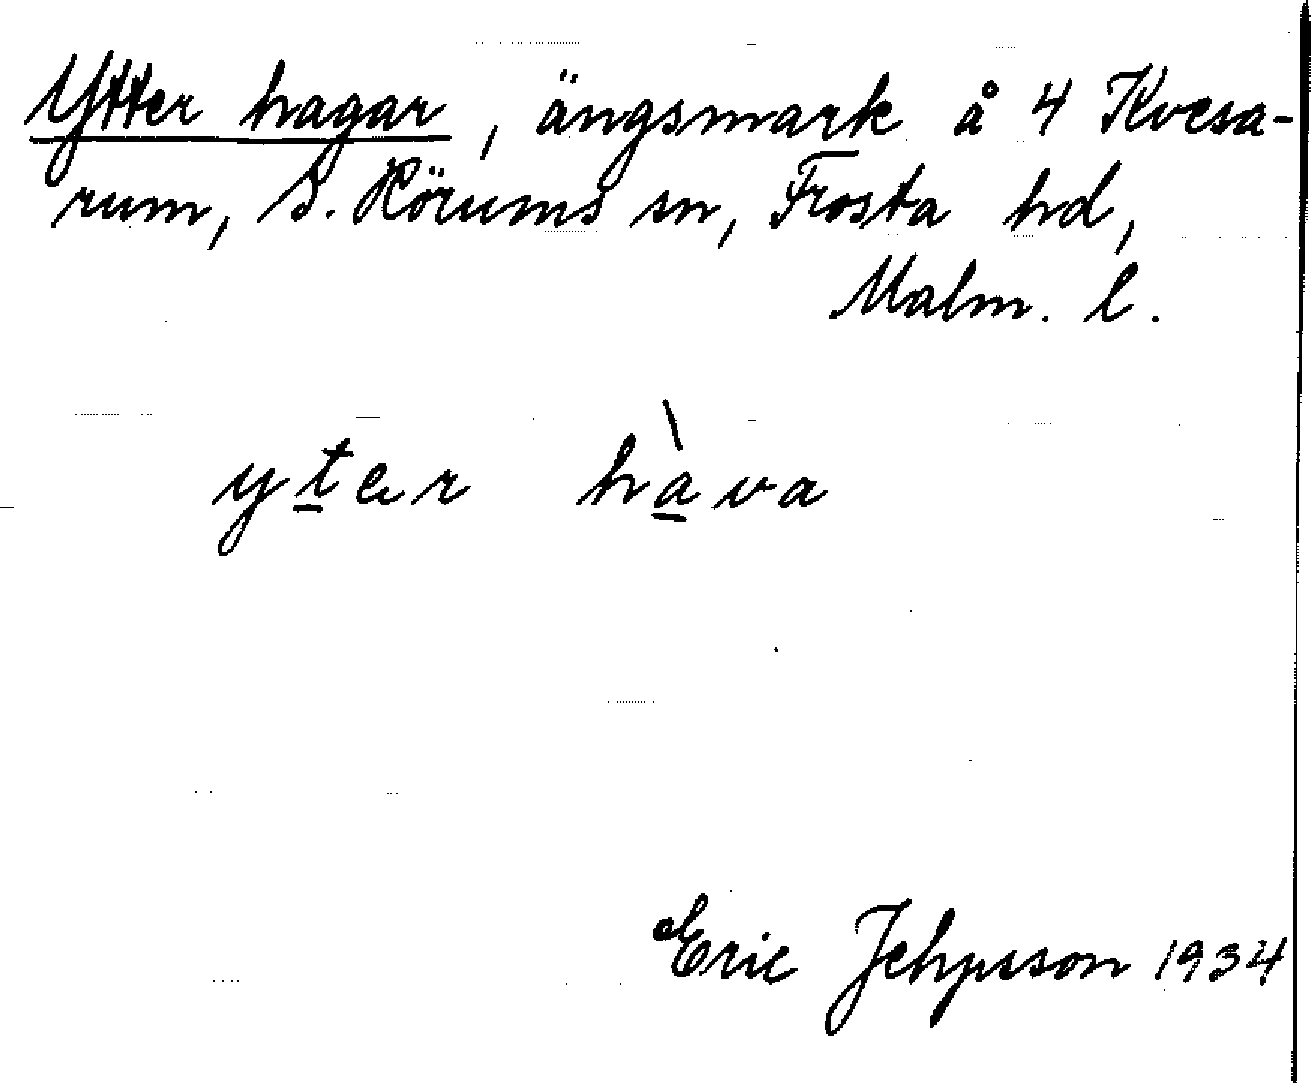 Ytter hagar, ängsmark å 4 Kvesa-
rum, S. Rörums sn, Frosta hd,
Malm. l.
yter hàva
Eric Jehpsson 1934